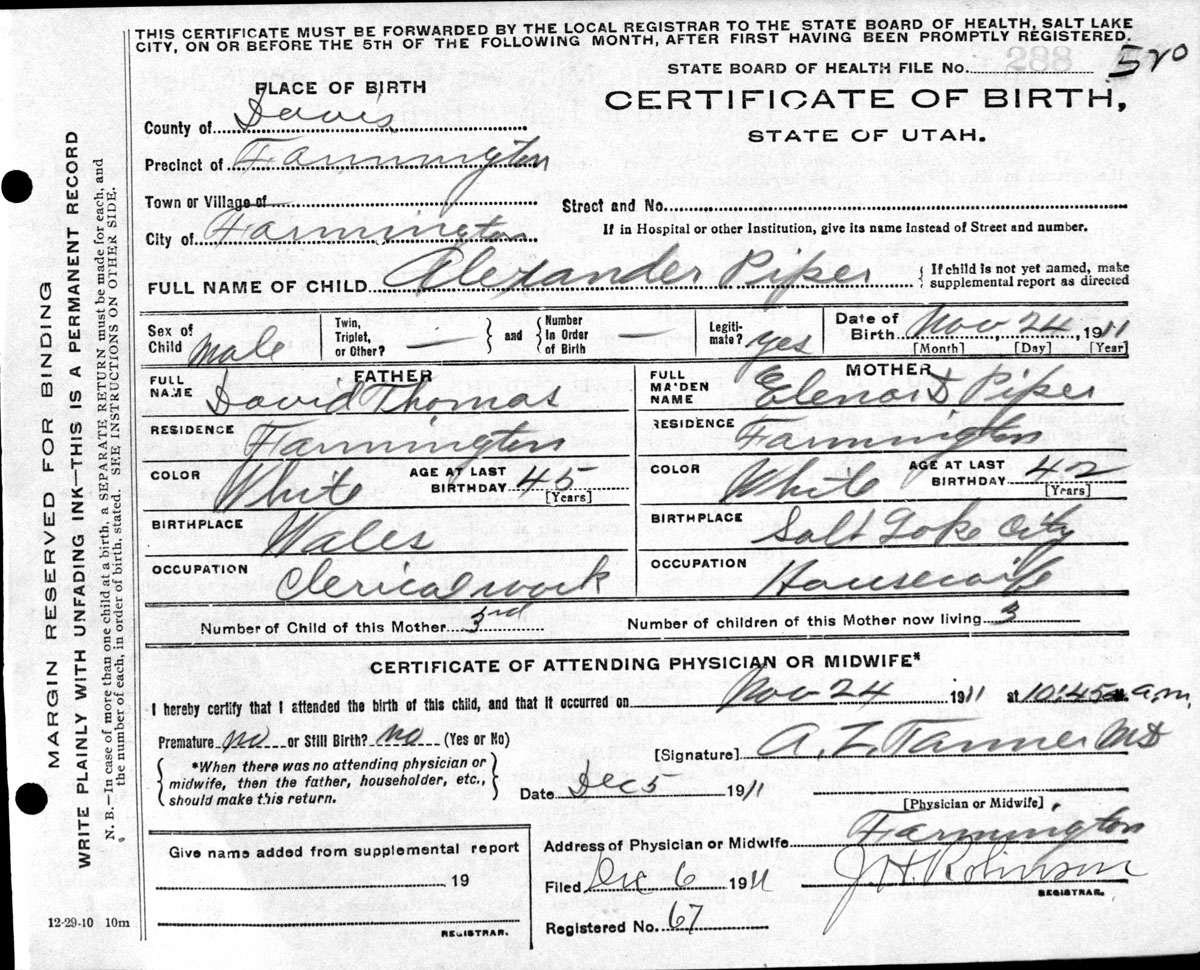 THIS CERTIFICATE MUST BE FORWARDED BY THE LOCAL REGISTRAR TO THE STATE BOARD OF HEALTH, SALT LAKE
CITY, ON OR BEFORE THE 5TH OF THE FOLLOWING MONTH, AFTER FIRST HAVING BEEN PROMPTLY REGISTERED.
STATE BOARD OF HEALTH FILE No. 520
PLACE OF BIRTH
CERTIFICATE OF BIRTH,
STATE OF UTAH.
County of Davis
Precinct of Farmington
Town or Village of
Street and No.
City of Farmington
If in Hospital or other Institution, give its name instead of Street and number.
FULL NAME OF CHILD Alexander Piper
If child is not yet named, make
supplemental report as directed
Sex of Child Male
Twin, Triplet, or Other? —
and Number In Order of Birth —
Legitimate? yes
Date of Birth Nov 24, 1911
[Month] [Day] [Year]
FATHER
MOTHER
FULL NAME David Thomas
FULL MAIDEN NAME Elenor D Piper
RESIDENCE Farmington
RESIDENCE Farmington
COLOR White AGE AT LAST BIRTHDAY 45 [Years]
COLOR White AGE AT LAST BIRTHDAY 42 [Years]
BIRTHPLACE Wales
BIRTHPLACE Salt Lake City
OCCUPATION Clerical work
OCCUPATION Housewife
Number of Child of this Mother 3rd
Number of children of this Mother now living 3
CERTIFICATE OF ATTENDING PHYSICIAN OR MIDWIFE*
I hereby certify that I attended the birth of this child, and that it occurred on Nov 24 1911 at 10:45 a.m.
Premature no or Still Birth? no (Yes or No)
[Signature] A. Z. Tanner MD
*When there was no attending physician or
midwife, then the father, householder, etc.,
should make this return.
Date Dec 5 1911
[Physician or Midwife]
Give name added from supplemental report
19
REGISTRAR.
Address of Physician or Midwife Farmington
Filed Dec 6 1911 J. H. Robinson
REGISTRAR.
Registered No. 67
12-29-10 10m
MARGIN RESERVED FOR BINDING
WRITE PLAINLY WITH UNFADING INK—THIS IS A PERMANENT RECORD
N. B.—In case of more than one child at a birth, a SEPARATE RETURN must be made for each, and
the number of each, in order of birth, stated. SEE INSTRUCTIONS ON OTHER SIDE.